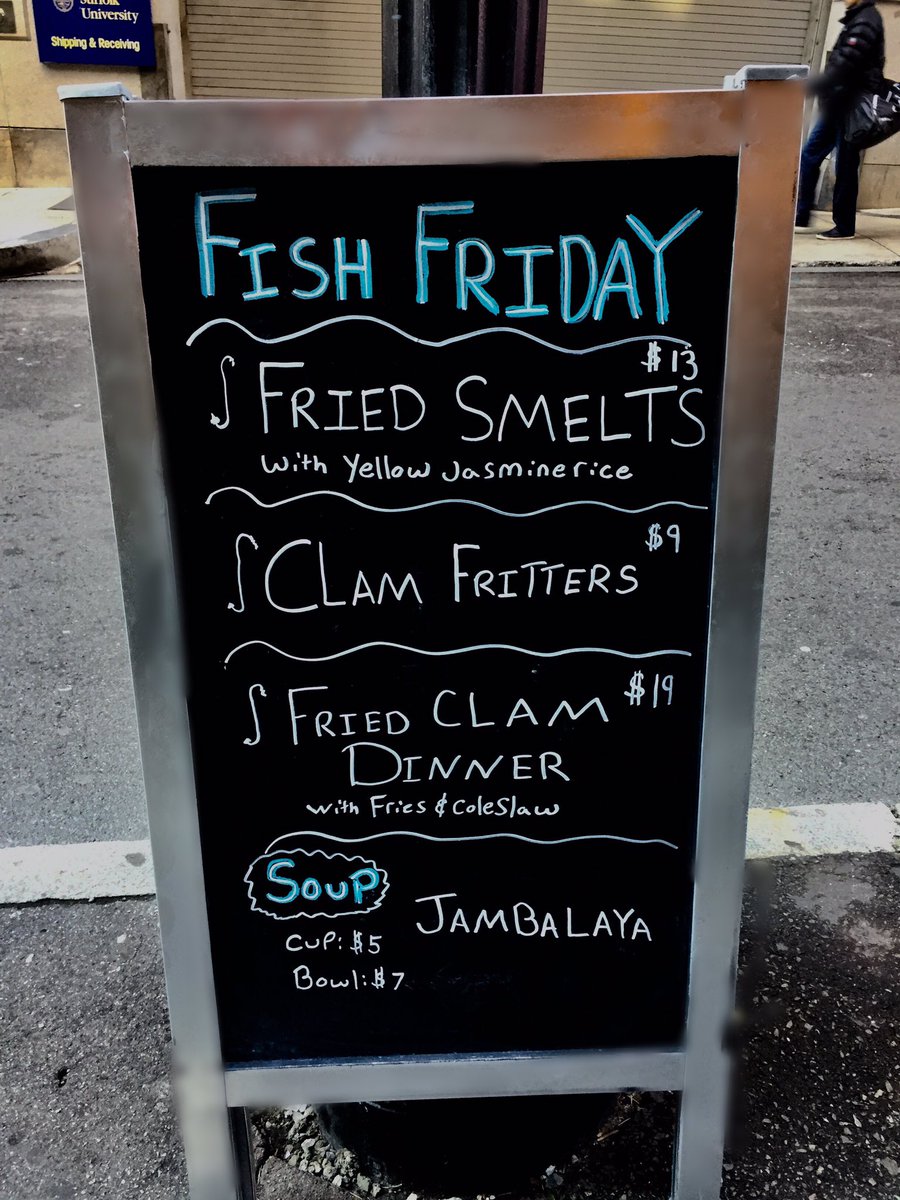 Suffolk
University
Shipping & Receiving
FISH FRIDAY
$13
FRIED SMELTS
with Yellow Jasmine rice
$9
CLAM FRITTERS
FRIED CLAM $19
DINNER
with Fries & ColeSlaw
Soup
JAMBALAYA
CUP: $5
Bowl: $7